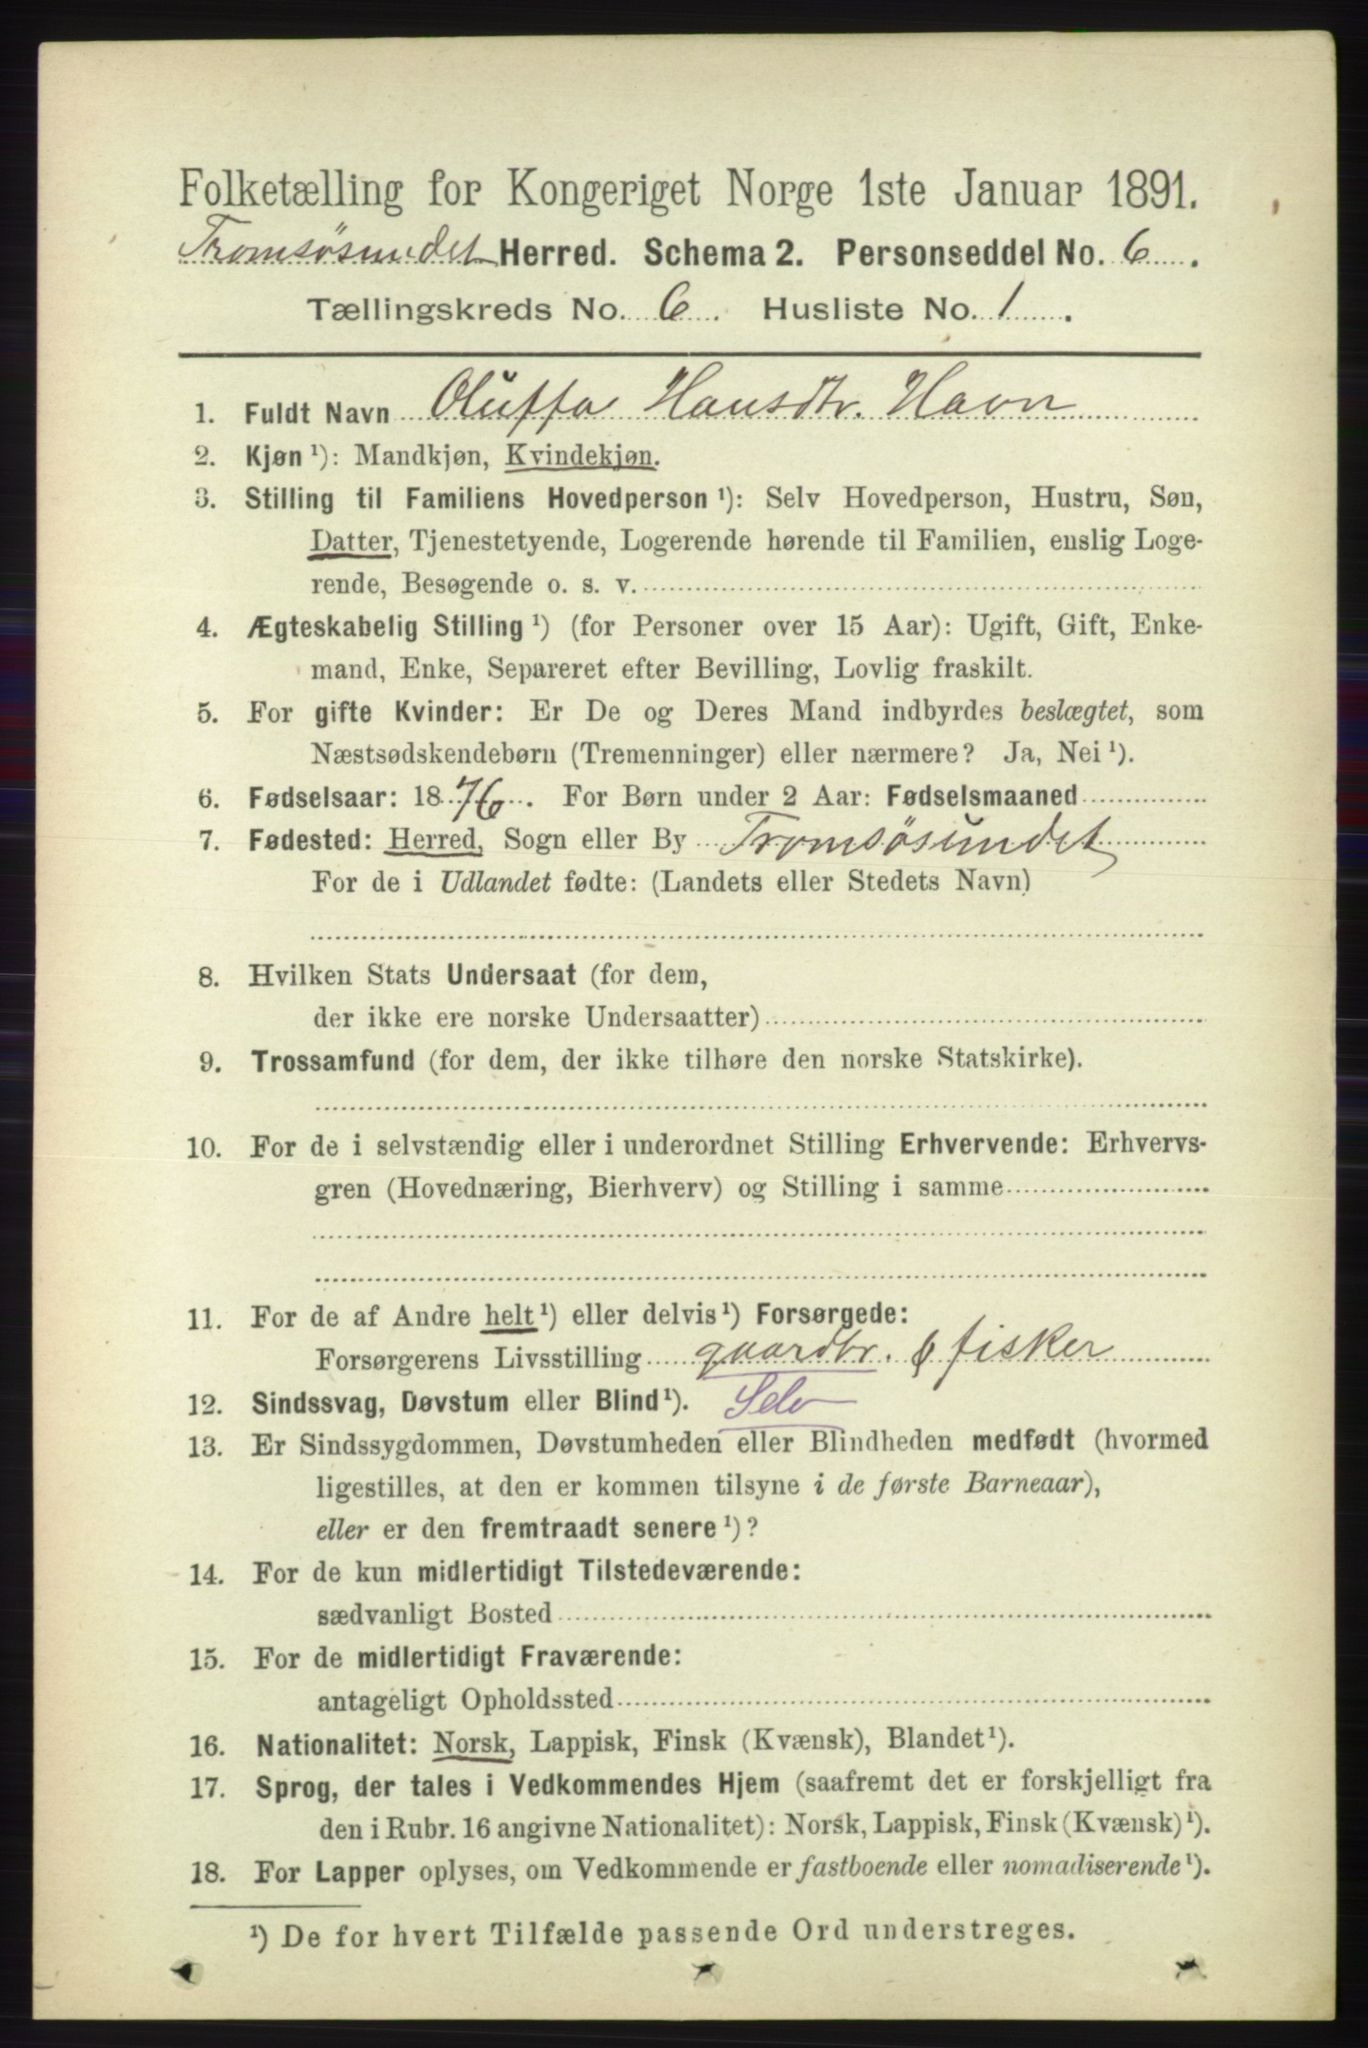 Folketælling for Kongeriget Norge 1ste Januar 1891.
Tromsøsundet Herred. Schema 2. Personseddel No. 6.
Tællingskreds No. 6. Husliste No. 1.
1. Fuldt Navn Oluffa Hansdtr. Havn
2. Kjøn ¹): Mandkjøn, Kvindekjøn.
3. Stilling til Familiens Hovedperson ¹): Selv Hovedperson, Hustru, Søn,
Datter, Tjenestetyende, Logerende hørende til Familien, enslig Loge-
rende, Besøgende o. s. v.
4. Ægteskabelig Stilling ¹) (for Personer over 15 Aar): Ugift, Gift, Enke-
mand, Enke, Separeret efter Bevilling, Lovlig fraskilt.
5. For gifte Kvinder: Er De og Deres Mand indbyrdes beslægtet, som
Næstsødskendebørn (Tremenninger) eller nærmere? Ja, Nei ¹).
6. Fødselsaar: 1876. For Børn under 2 Aar: Fødselsmaaned
7. Fødested: Herred, Sogn eller By Tromsøsundet
For de i Udlandet fødte: (Landets eller Stedets Navn)
8. Hvilken Stats Undersaat (for dem,
der ikke ere norske Undersaatter)
9. Trossamfund (for dem, der ikke tilhøre den norske Statskirke).
10. For de i selvstændig eller i underordnet Stilling Erhvervende: Erhvervs-
gren (Hovednæring, Bierhverv) og Stilling i samme
11. For de af Andre helt ¹) eller delvis ¹) Forsørgede:
Forsørgerens Livsstilling gaardbr. & fisker
12. Sindssvag, Døvstum eller Blind ¹). Selv
13. Er Sindssygdommen, Døvstumheden eller Blindheden medfødt (hvormed
ligestilles, at den er kommen tilsyne i de første Barneaar),
eller er den fremtraadt senere ¹)?
14. For de kun midlertidigt Tilstedeværende:
sædvanligt Bosted
15. For de midlertidigt Fraværende:
antageligt Opholdssted
16. Nationalitet: Norsk, Lappisk, Finsk (Kvænsk), Blandet ¹).
17. Sprog, der tales i Vedkommendes Hjem (saafremt det er forskjelligt fra
den i Rubr. 16 angivne Nationalitet): Norsk, Lappisk, Finsk (Kvænsk) ¹).
18. For Lapper oplyses, om Vedkommende er fastboende eller nomadiserende ¹).
¹) De for hvert Tilfælde passende Ord understreges.